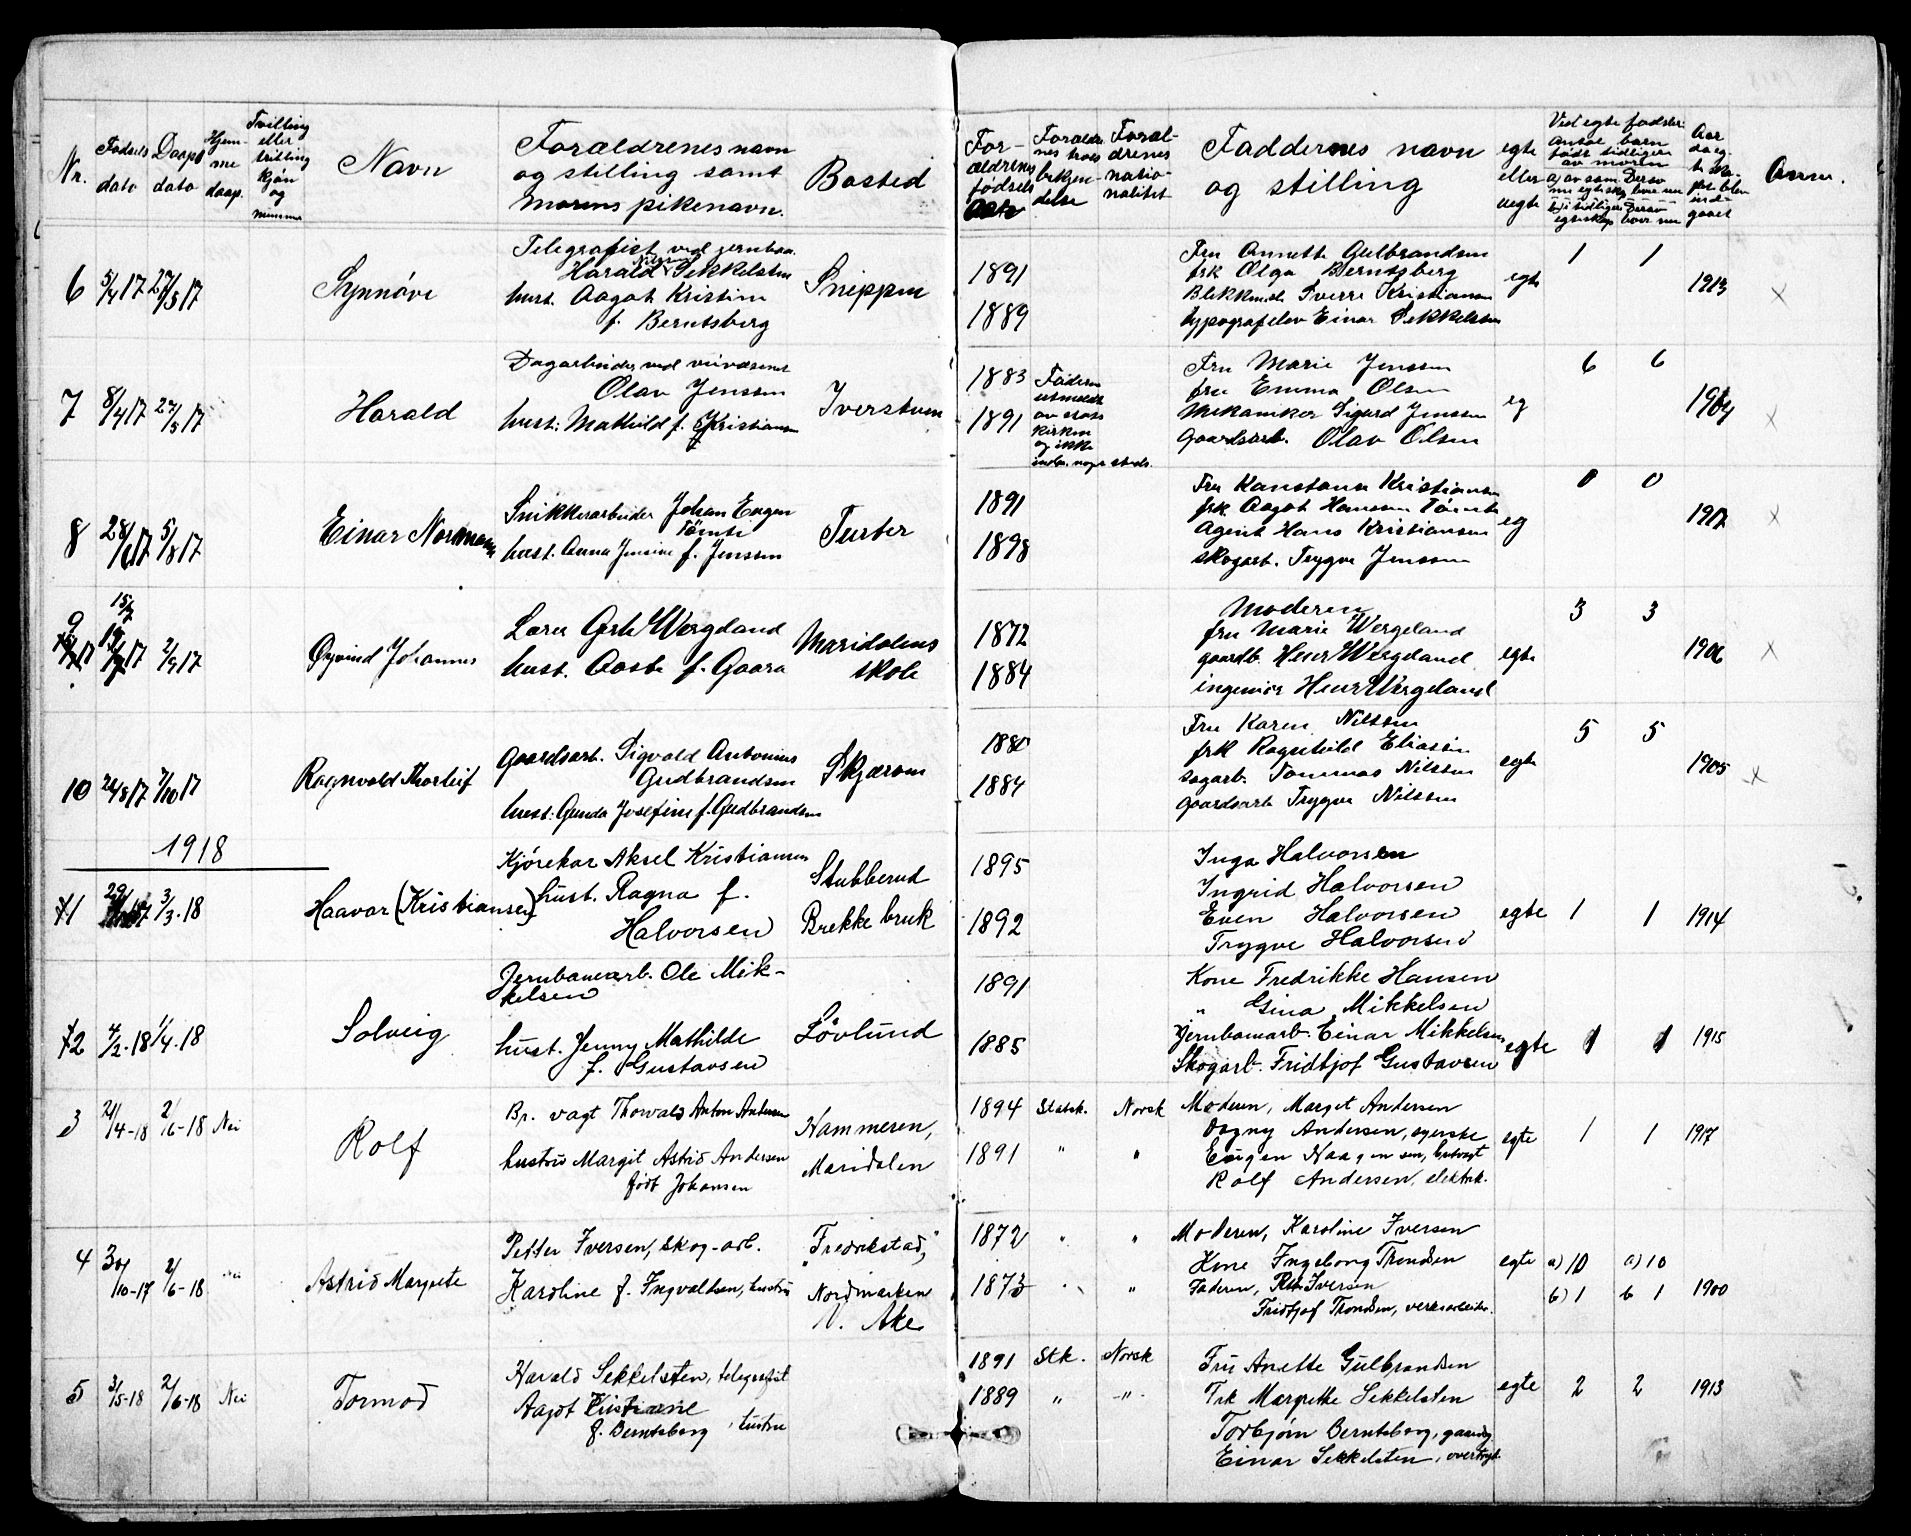 Nr.
Fødsels dato
Daaps dato
Hjemme daap.
Tvilling eller trilling kjøn og numme
Navn
Forældrenes navn
og stilling samt
morens pikenavn.
Bosted
Forældrenes fødsels Aar
Forældrenes troes bekjendelse
Forældrenes nationalitet
Faddernes navn
og stilling
egte eller uegte
Ved egte fødsler
antal barn
født tidligere
av moren
Anm.
6 5/4 17 27/5 17 Synnøve
Telegrafist ved jernban.
Harald Nilsen Sekkelsten
hust. Aagot Kristine
f. Berntsberg
Snippen
1891
1889
Fru Annette Gulbrandsen
frk Olga Berntsberg
Blikkensl. Sverre Kristiansen
typografelev Einar Sekkelsten
egte 1 1 1913 x
7 8/4 17 27/5 17 Harald
Dagarbeider ved veivæsenet
Olav Jenssen
hust: Mathild f. Kristiansen
Iverstuen
1883
1891
Faderen
utmeldt
av stats
kirken
og ikke
indm. noget steds.
Fru Marie Jenssen
fru Emma Olsen
Mekaniker Sigurd Jenssen
Gaardsarb. Olav Olsen
eg 6 6 1904 x
8 28/6 17 5/8 17 Einar Normann
Snikkerarbeider Johan Eugen
Tömte
hust. Anna Jensine f. Jenssen
Turter
1891
1898
Fru Konstanse Kristiansen
frk. Aagot Hanssen Tömte
Agent Hans Kristiansen
skogarb. Trygve Jenssen
eg 0 0 1917 x
9 15/7 17 2/9 17 Øyvind Johannes
Lærer Wergeland
hust. Aaste f. Gaara
Maridalens
skole
1872
1884
Moderen
fru Marie Wergeland
gaardb. Wergeland
ingeniør Wergeland
egte 3 3 1906 x
10 24/8 17 7/10 17 Ragnvald Thorleif
Gaardsarb. Sigvald Antonius
Gudbrandsen
hust: Gunda Josefine f. Gudbrandsen
Skjærven
1880
1884
Fru Karen Nilssen
frk Ragnhild Eliassen
sagarb. Tommas Nilssen
Gaardsarb Trygve Nilssen
egte 5 5 1905 x
1918
1 3/3.18 Haavar (Kristiansen)
Kjörekar Aksel Kristiansen
hust. Ragna f.
Halvorsen
Stubberud
Brekke bruk
1895
1892
Inga Halvorsen
Ingrid Halvorsen
Even Halvorsen
Trygve Halvorsen
egte 1 1 1914
2 4/2.18 1/4.18 Solveig
Jernbanearb. Ole Mik-
kelsen
hust. Jenny Mathilde
f. Gustavsen
Lövlund
1891
1885
Kone Fredrikke Hansen
" Gina Mikkelsen
Jernbanearb. Einar Mikkelsen
Skogarb. Fridtjof Gustavsen
egte 1 1 1915
3 21/4-18 2/6-18 Nei Rolf
Br. vagt Thorvald Anton Andersen
hustru Margit Astrid Andersen
født Johansen
Hammeren,
Maridalen
1894 Statsk. Norsk
1891 " "
Moderen, Marget Andersen
Dagny Andersen, syerske
Eugen Haagensen,
Rolf Andersen, elektrk.
egte 1 1 1917
4 30/10-17 2/6-18 Nei Astrid Margrete
Petter Iversen, skog-arb.
Karoline f. Ingvaldsen, hustru
"Fredrikstad,"
Nordmarken
V. Aker
1872 " "
1873 " "
Moderen, Karoline Iversen
Kone Ingeborg Trondsen
Faderen, Iversen
Fridtjof Trondsen, verksarbeider.
egte a) 10 a) 10
b) 1 b 1 1900
5 3/5-18 2/6-18 Nei Tormod
Harald Sekkelsten, telegrafist
Aagot Kristiane
f. Berntsberg, hustru
1891 Stk. Norsk
1889 " -"-
Fru Anette Gulbrandsen
Frk Margrethe Sekkelsten
Torbjørn Berntsberg,
Einar Sekkelsten,
egte 2 2 1913